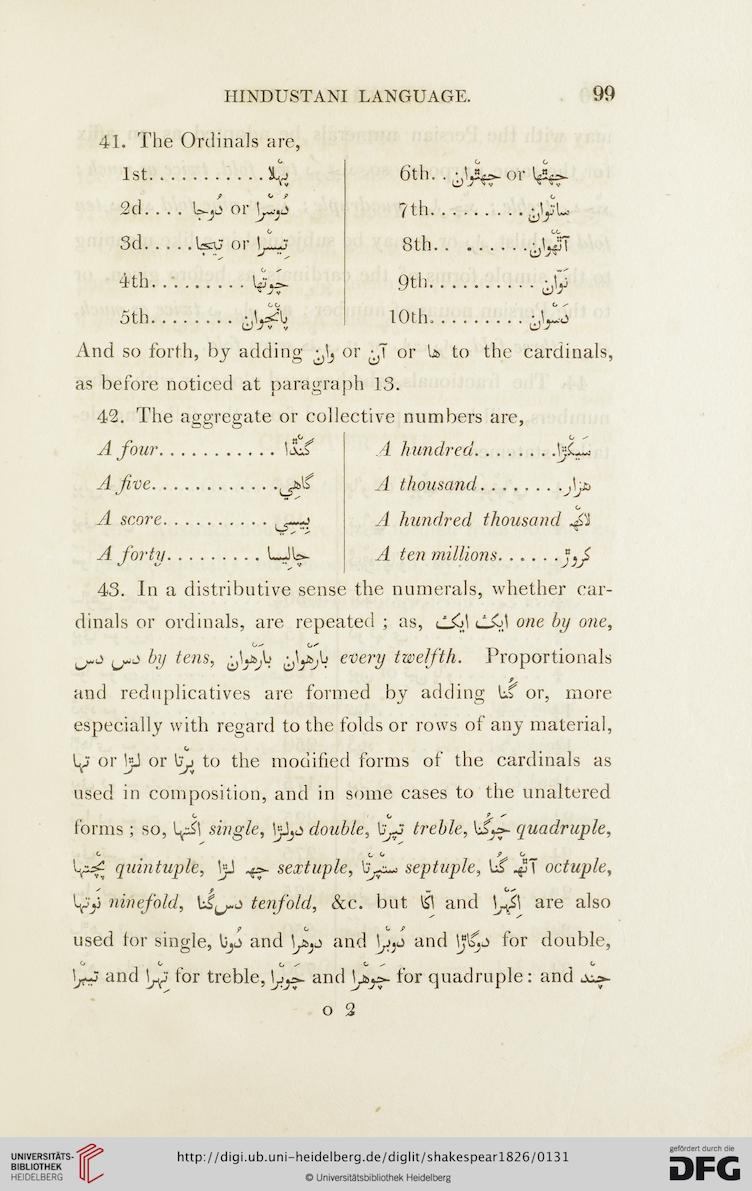 HINDUSTANI LANGUAGE. 99
41. The Ordinals are,
1st........... پہلا
2d.... دُوسرا or دُوجا
3d..... تیسرا or تیجا
4th......... چوتھا
5th........ پانچواں
6th.. چھٹھا or چھٹھواں
7th......... ساتواں
8th.. ...... آٹھواں
9th.......... نواں
10th......... دسواں
And so forth, by adding واں or آں or ھا to the cardinals,
as before noticed at paragraph 13.
42. The aggregate or collective numbers are,
A four........... گنڈا
A five............ گاھي
A score.......... بیسي
A forty......... چالیسا
A hundred........ سیکڑا
A thousand........ ھزار
A hundred thousand لاکھ
A ten millions...... کروڑ
43. In a distributive sense the numerals, whether car-
dinals or ordinals, are repeated ; as, ایک ایک one by one,
دس دس by tens, بارھواں بارھواں every twelfth. Proportionals
and reduplicatives are formed by adding گُنا or, more
especially with regard to the folds or rows of any material,
تہا or لڑا or پرتا to the modified forms of the cardinals as
used in composition, and in some cases to the unaltered
forms ; so, اکتہا single, دولڑا double, تپرتا treble, چوگُنا quadruple,
پچتہا quintuple, چھ لڑا sextuple, ستپرتا septuple, آٹھ گُنا octuple,
نوتہا ninefold, دس گُنا tenfold, &c. but اکّا and اکہرا are also
used for single, دُونا and دوھرا and دُوبرا and دوگاڑا for double,
تیبرا and تہرا for treble, چوبرا and چوھرا for quadruple: and چند
O 2
UNIVERSITÄTS-
BIBLIOTHEK
HEIDELBERG
http://digi.ub.uni-heidelberg.de/diglit/shakespear1826/0131
© Universitätsbibliothek Heidelberg
gefördert durch die
DFG